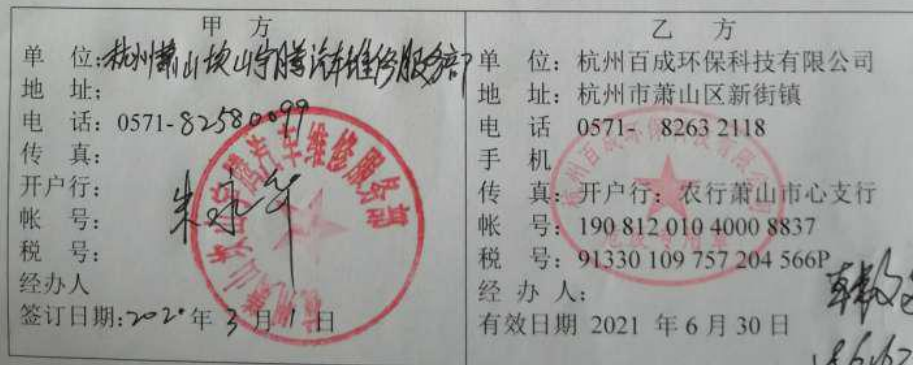 甲 方
单 位:杭州萧山坎山宁腾汽车维修服务部
地 址:
电 话: 0571-82580099
传 真:
开户行:
帐 号:
税 号:
经办人
签订日期:2020年3月1日
杭州萧山坎山宁腾汽车维修服务部
乙 方
单 位: 杭州百成环保科技有限公司
地 址: 杭州市萧山区新街镇
电 话 0571- 8263 2118
手 机
传 真: 开户行: 农行萧山市心支行
帐 号: 190 812 010 4000 8837
税 号: 91330 109 757 204 566P
经 办 人:
有效日期 2021 年 6 月 30 日
杭州百成环保科技有限公司